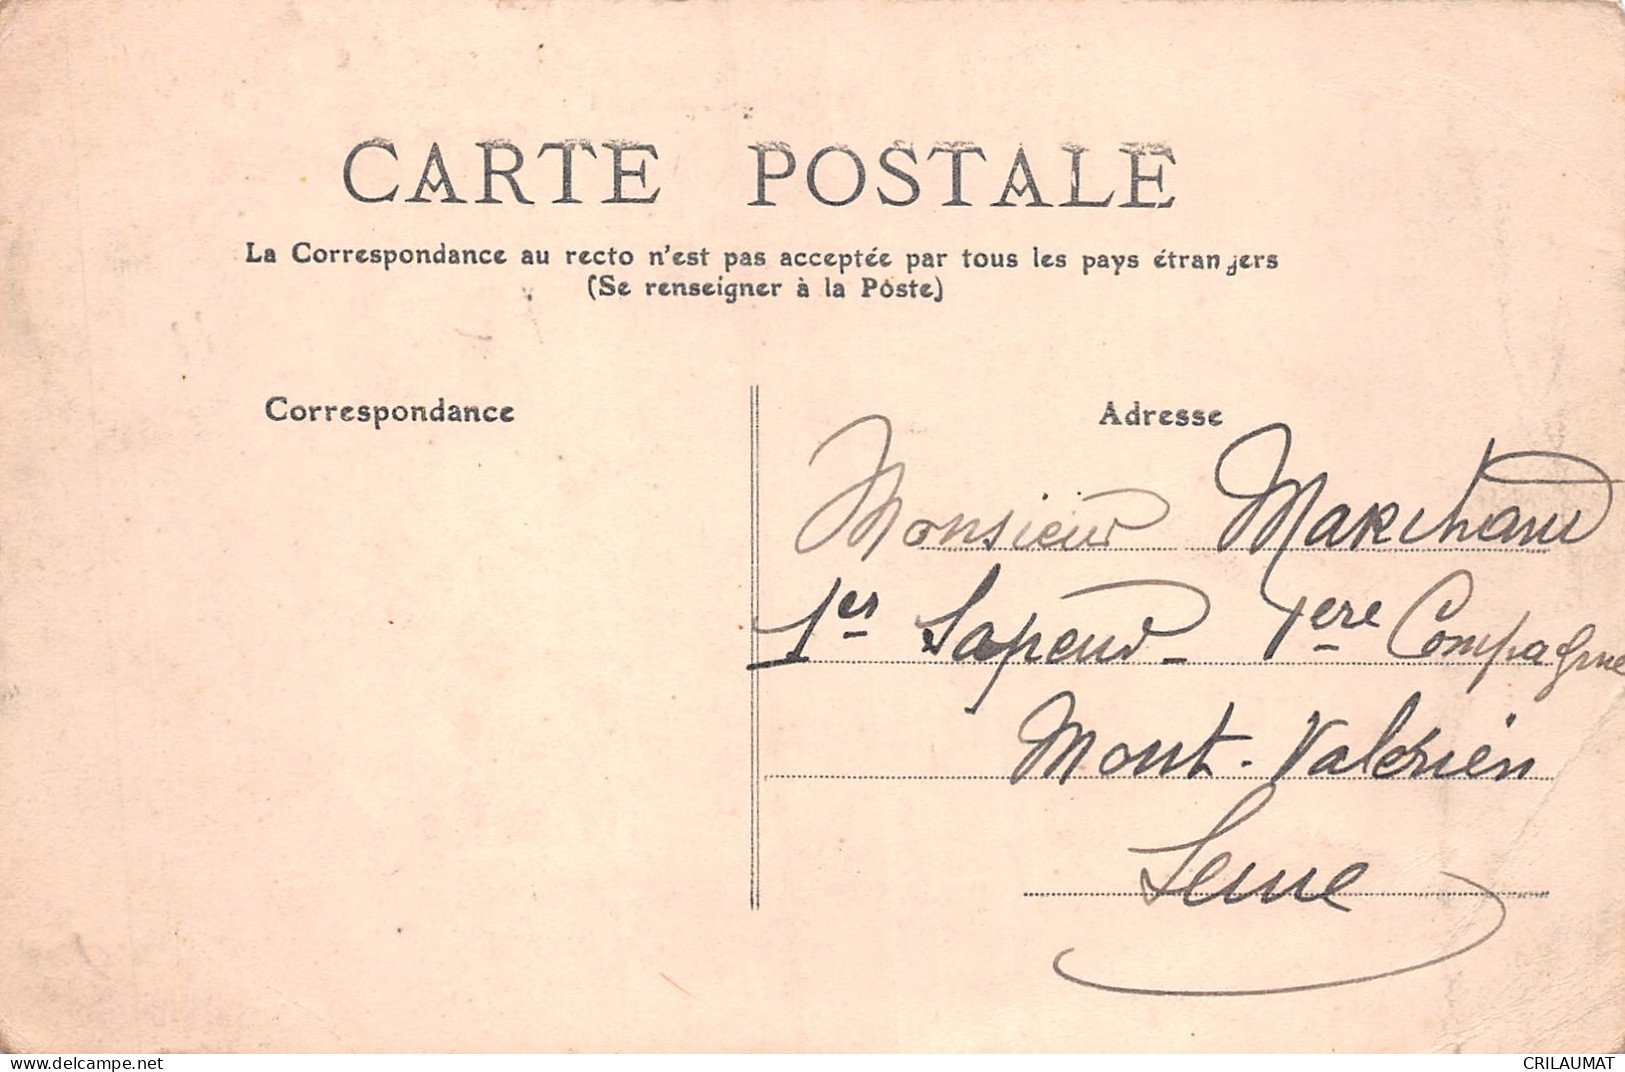 CARTE POSTALE
La Correspondance au recto n'est pas acceptée par tous les pays étrangers
(Se renseigner à la Poste)
Correspondance
Adresse
Monsieur Marchand
1er Sapeur 1ere Compagnie
Mont-Valérien
Seine
www.delcampe.net
CRILAUMAT